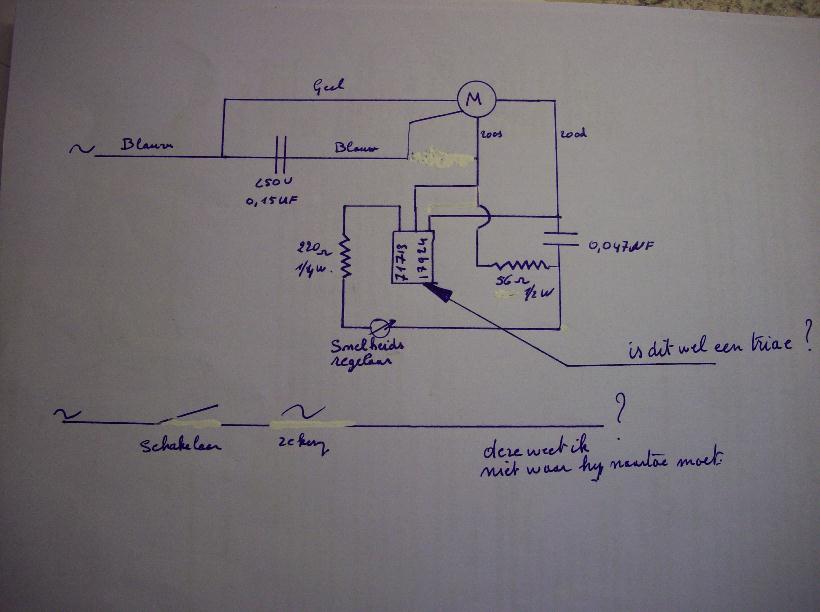 Geel
M
~ Blauw
Blauw
roos
rood
250V
0,15UF
220Ω
1/4W.
71713
17924
0,047UF
56Ω
1/2W
Snelheids
regelaar
is dit wel een triac ?
~
?
Schakelaar
deze weet ik
niet waar hij naartoe moet.